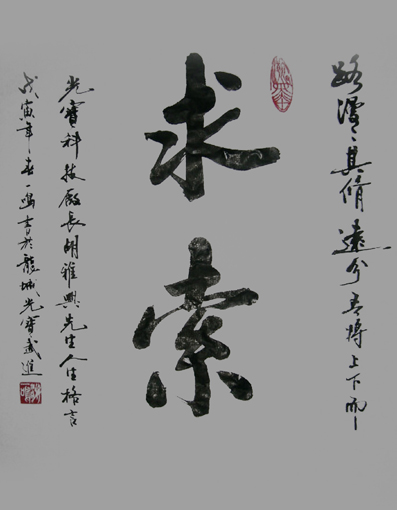 路漫々其脩遠兮吾將上下而
求索
光寶科技廠長胡雅興先生人生格言
戊寅年春一鳴書於龍城光寶武進